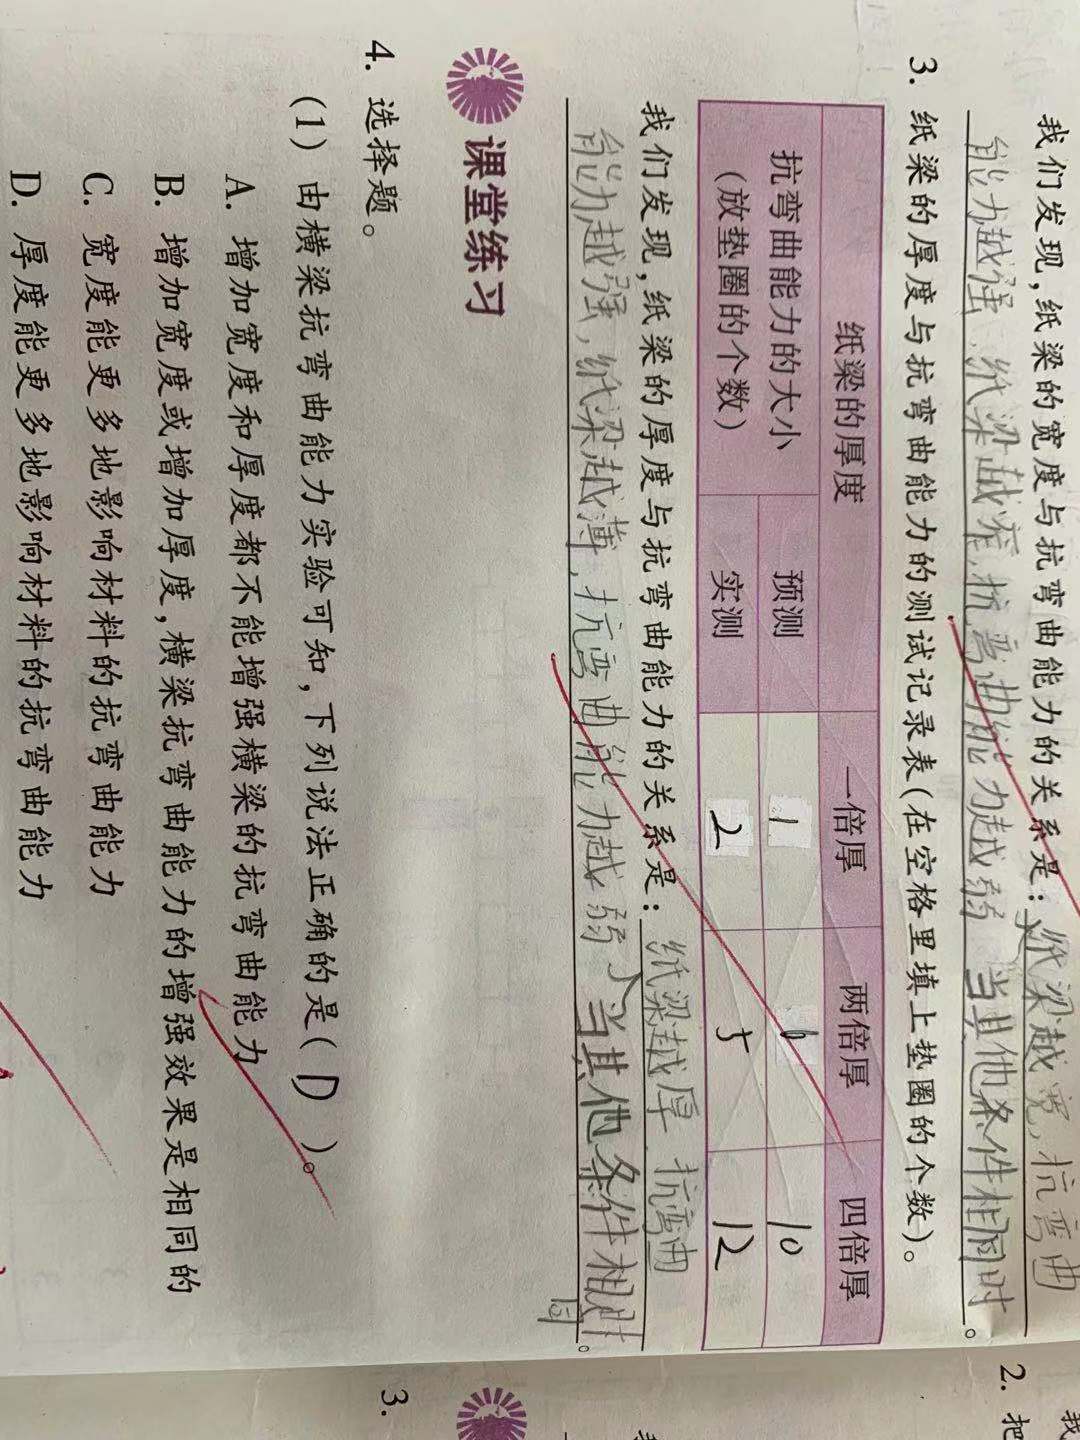 我们发现,纸梁的宽度与抗弯曲能力的关系是:纸梁越宽,抗弯曲
能力越强,纸梁越窄,抗弯曲能力越弱 当其他条件相同时。
3. 纸梁的厚度与抗弯曲能力的测试记录表(在空格里填上垫圈的个数)。
纸梁的厚度 一倍厚 两倍厚 四倍厚
抗弯曲能力的大小 预测 1 6 10
(放垫圈的个数) 实测 2 5 12
我们发现,纸梁的厚度与抗弯曲能力的关系是:纸梁越厚 抗弯曲
能力越强,纸梁越薄,抗弯曲能力越弱 当其他条件相同时。
课堂练习
4. 选择题。
(1) 由横梁抗弯曲能力实验可知,下列说法正确的是( D )。
A. 增加宽度和厚度都不能增强横梁的抗弯曲能力
B. 增加宽度或增加厚度,横梁抗弯曲能力的增强效果是相同的
C. 宽度能更多地影响材料的抗弯曲能力
D. 厚度能更多地影响材料的抗弯曲能力
2. 把
3.